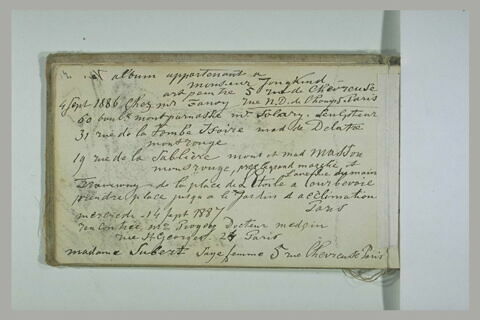 cet album appartenant a
monsieur Jongkind
art peintre 5 rue de Chevreuse
4 Sept 1886 Chez mr Fanoy rue N.D. de Champs Paris
60 boul montparnasse mr Solary, Sculpteur
31 rue de la tombe Isoire mad de Delatre
montrouge
19 rue de la Sablière mont et mad Masson
montrouge, pres le grand marché et
l'avenue du main
Tramway de la place de l'Etoile a Courbevoie
prendre place jusqu'a le Jardin d'acclimation
Paris
mercredi 14 Sept 1887
rencontrée, mr Docteur medecin
rue St Georges. 24 Paris
madame Subert Sage femme 5 rue Chevreuse Paris